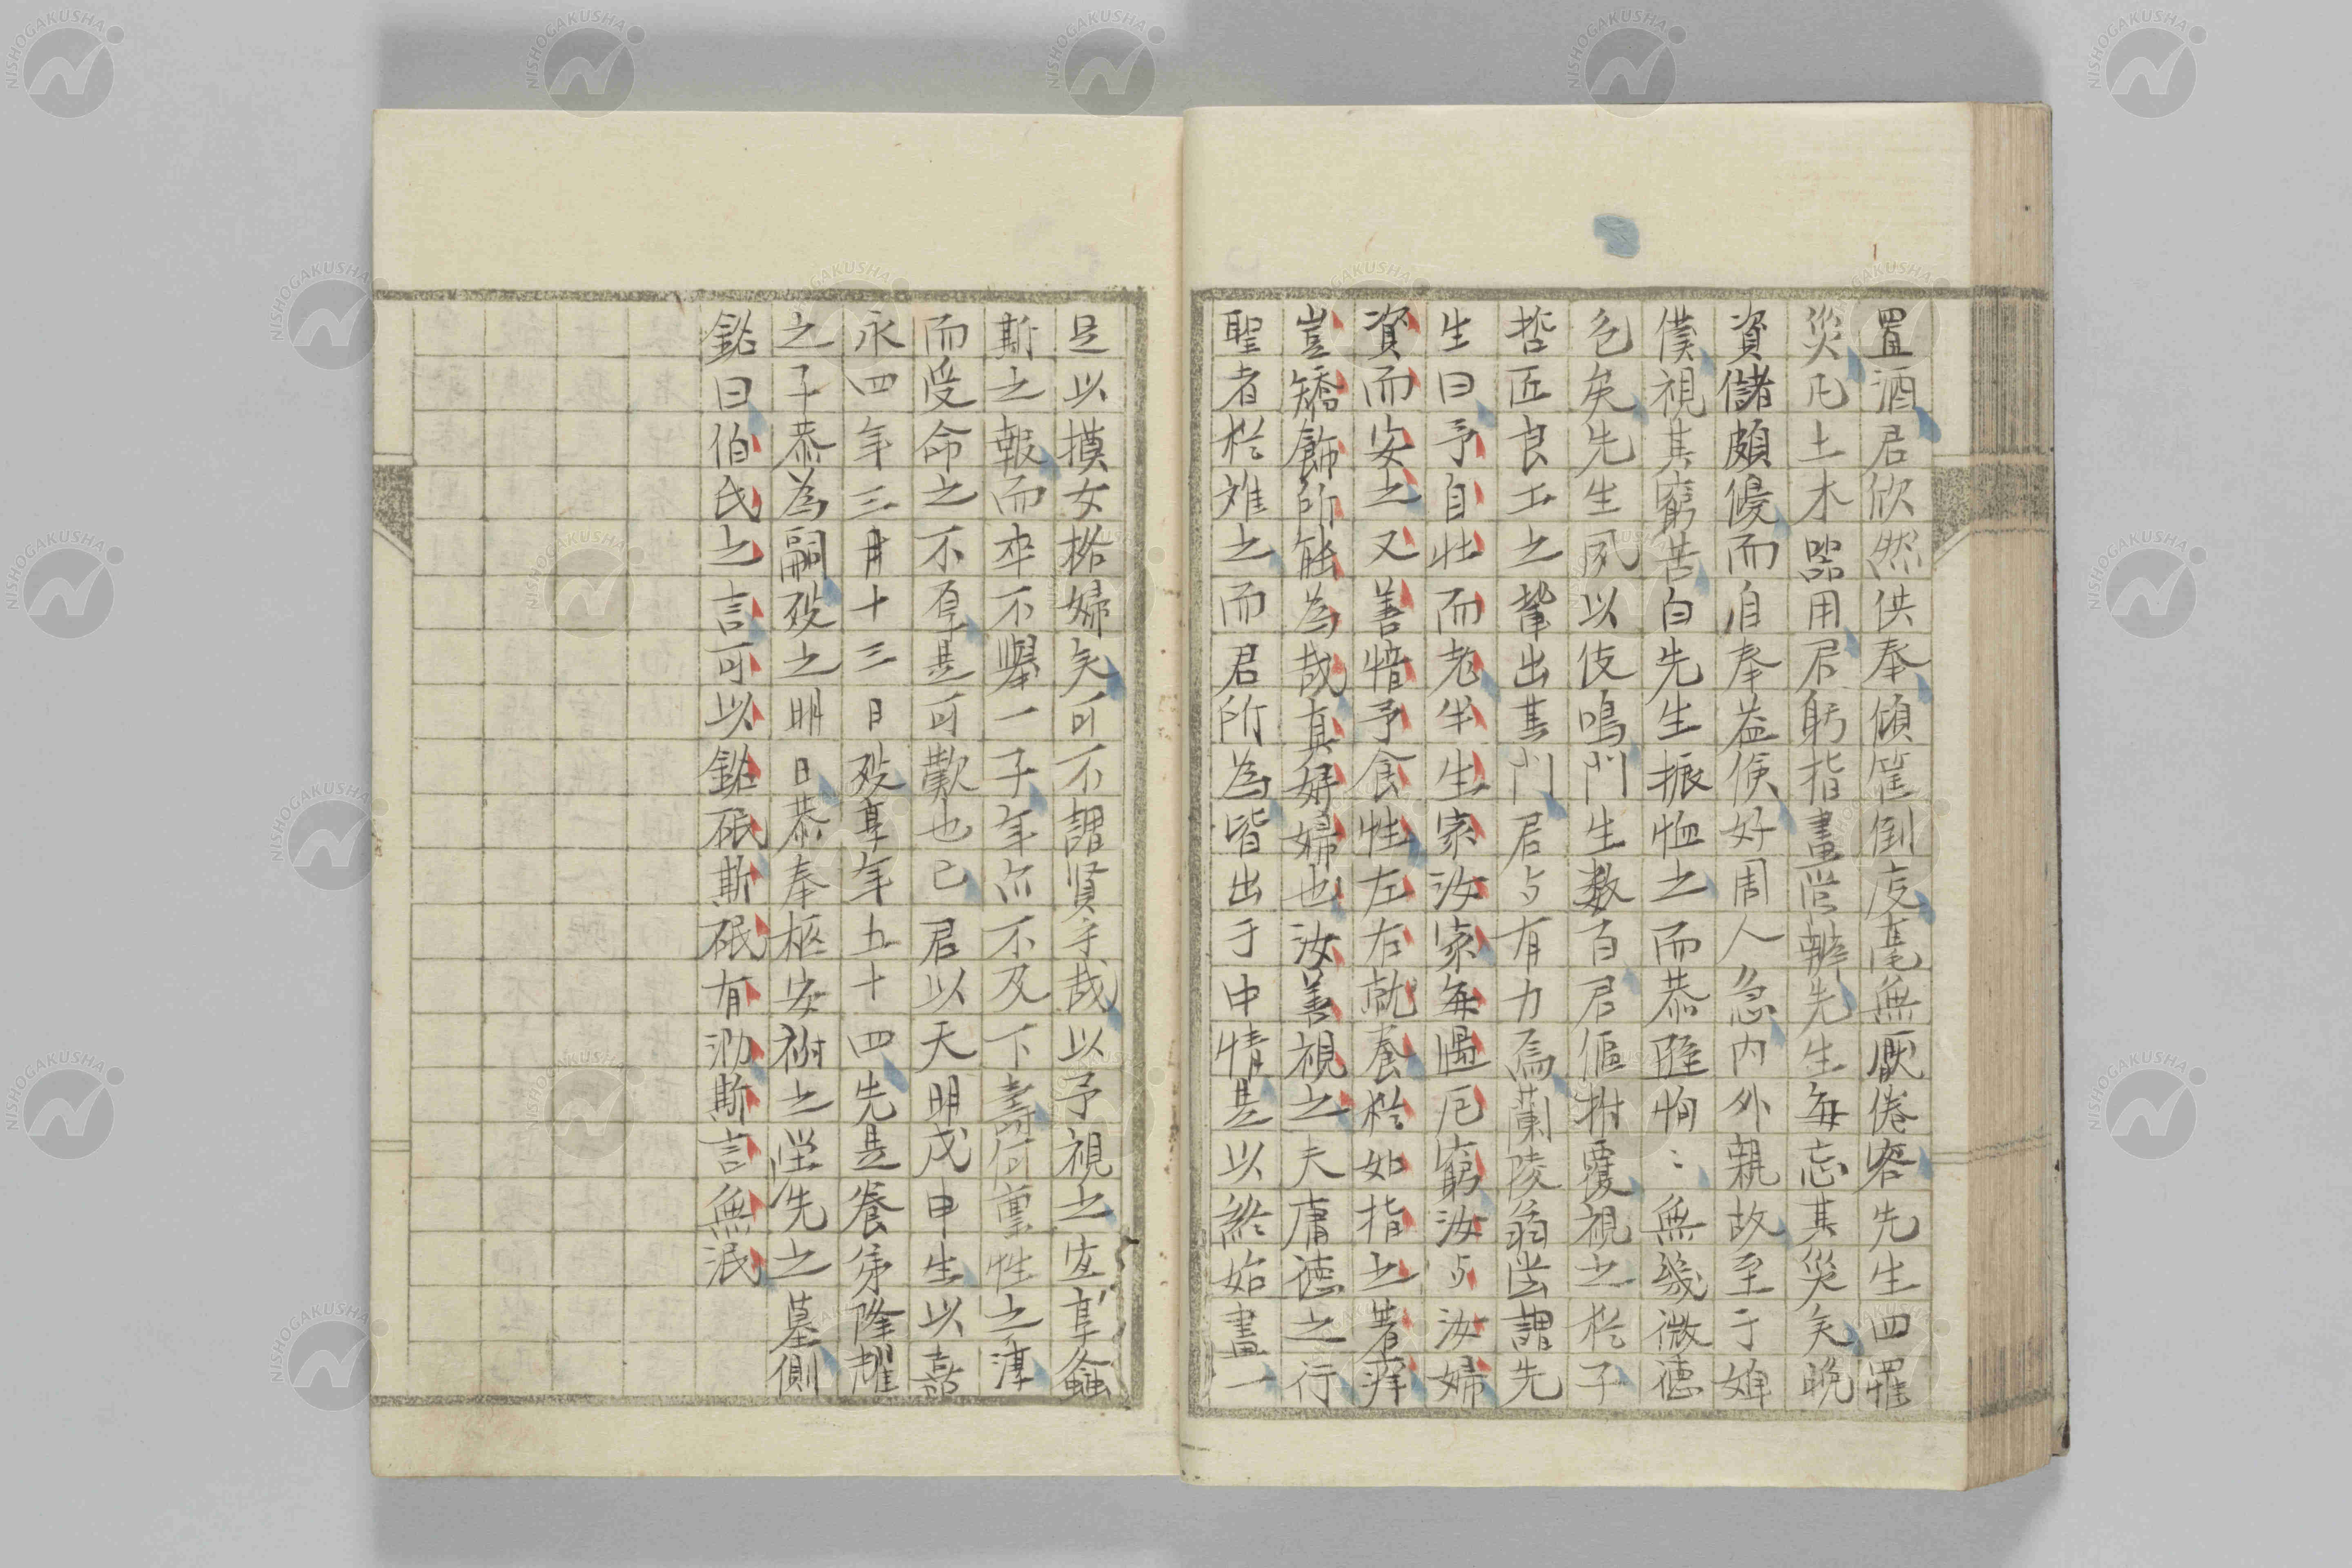 置酒君欣然供奉傾筐倒庋毫無厭倦容先生四罹
災凡土木器用君躬指畫営辨先生每忘其災矣晩
資儲頗優而自奉益儉好周人急内外親故至于婢
僕視其窮苦白先生振恤之而恭謹恂〻無幾微德
色矣先生夙以伎鳴門生數百君傴拊覆視之於子
哲匠良工之輩出其門君与有力焉蘭陵翁嘗謂先
生曰予自壮而老半生家汝家每遇厄窮汝与汝婦
資而安之又善諳予食性左右就養於如指之著痒
豈矯飾所能為哉真好婦也汝善視之夫庸德之行
聖者於難之而君所為皆出于中情是以終始畫一
是以摸女格婦矣可不謂賢乎哉以予視之宜享螽
斯之報而卒不舉一子年亦不及下壽何稟性之淳
而受命之不厚是可歎也已君以天明戊申生以嘉
永四年三月十三日歿享年五十四先是養弟隆耀
之子恭為嗣歿之明日恭奉柩安祔之塋先之墓側
銘曰伯氏之言可以銘砥斯砥有泐斯言無泯
NISHOGAKUSHA